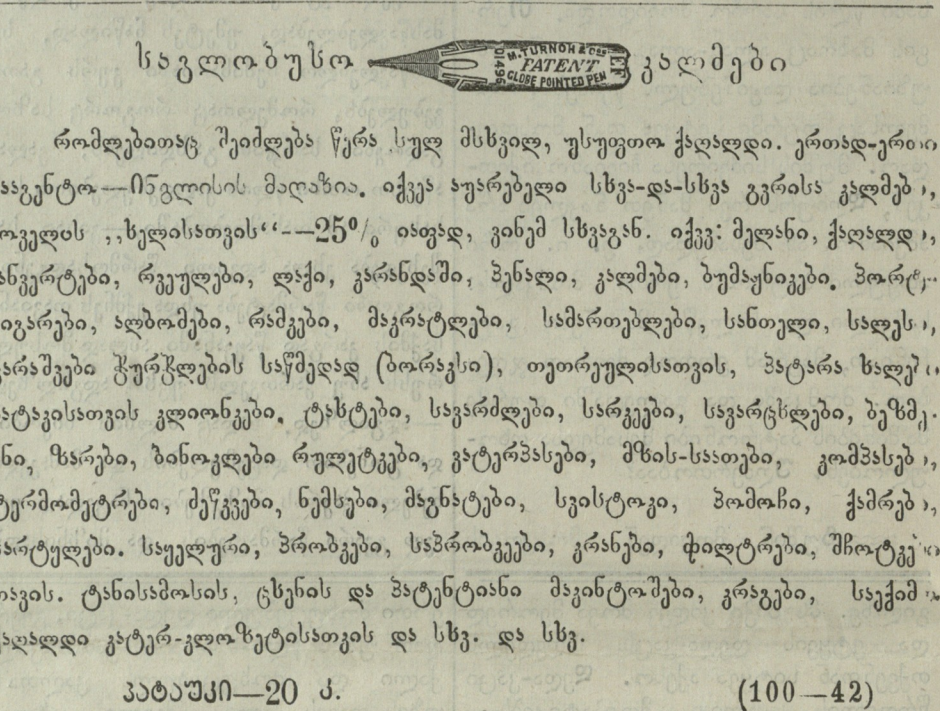 საგლობუსო M. TURNOR & Cos PATENT GLOBE POINTED PEN D1496 EF კალმები
რომლებითაც შეიძლება წერა სულ მსხვილ, უსუფთო ქაღალდი. ერთად-ერთი
სააგენტო—ინგლისის მაღაზია. იქვეა აუარებელი სხვა-და-სხვა გვრისა კალმები,
„ხელისათვის“--25% იაფად, ვინემ სხვაგან. იქვე: მელანი, ქაღალდი,
კანვერტები, რვეულები, ლაქი, კარანდაში, პენალი, კალმები, ბუმაჟნიკები. პორტ-
სიგარები, ალბომები, რამკები, მაკრატლები, სამართებლები, სანთელი, სალესი,
ჭურჭლების საწმედად (ბორაკსი), თეთრეულისათვის, პატარა ხალები
პატაკისათვის კლიონკები. ტასტები, სავარძლები, სარკეები, სავარცხლები, ბეზმე-
ნი, ზარები, ბინოკლები რულეტკები, ვატერპასები, მზის-საათები, კომპასები,
ტერმომეტრები, მეწკვები, ნემსები, მაგნატები, სვისტოკი, პომოჩი, ქამრები,
საყელური, პრობკები, საპრობკეები, კრანები, ფილტრები, შჩოტკები
თავის. ტანისამოსის, ცხენის და პატენტიანი მაკინტოშები, კრაგები, საექიმ
ქაღალდი კატერ-კლოზეტისათკის და სხვ. და სხვ.
პატაუკი—20 კ. (100—42)